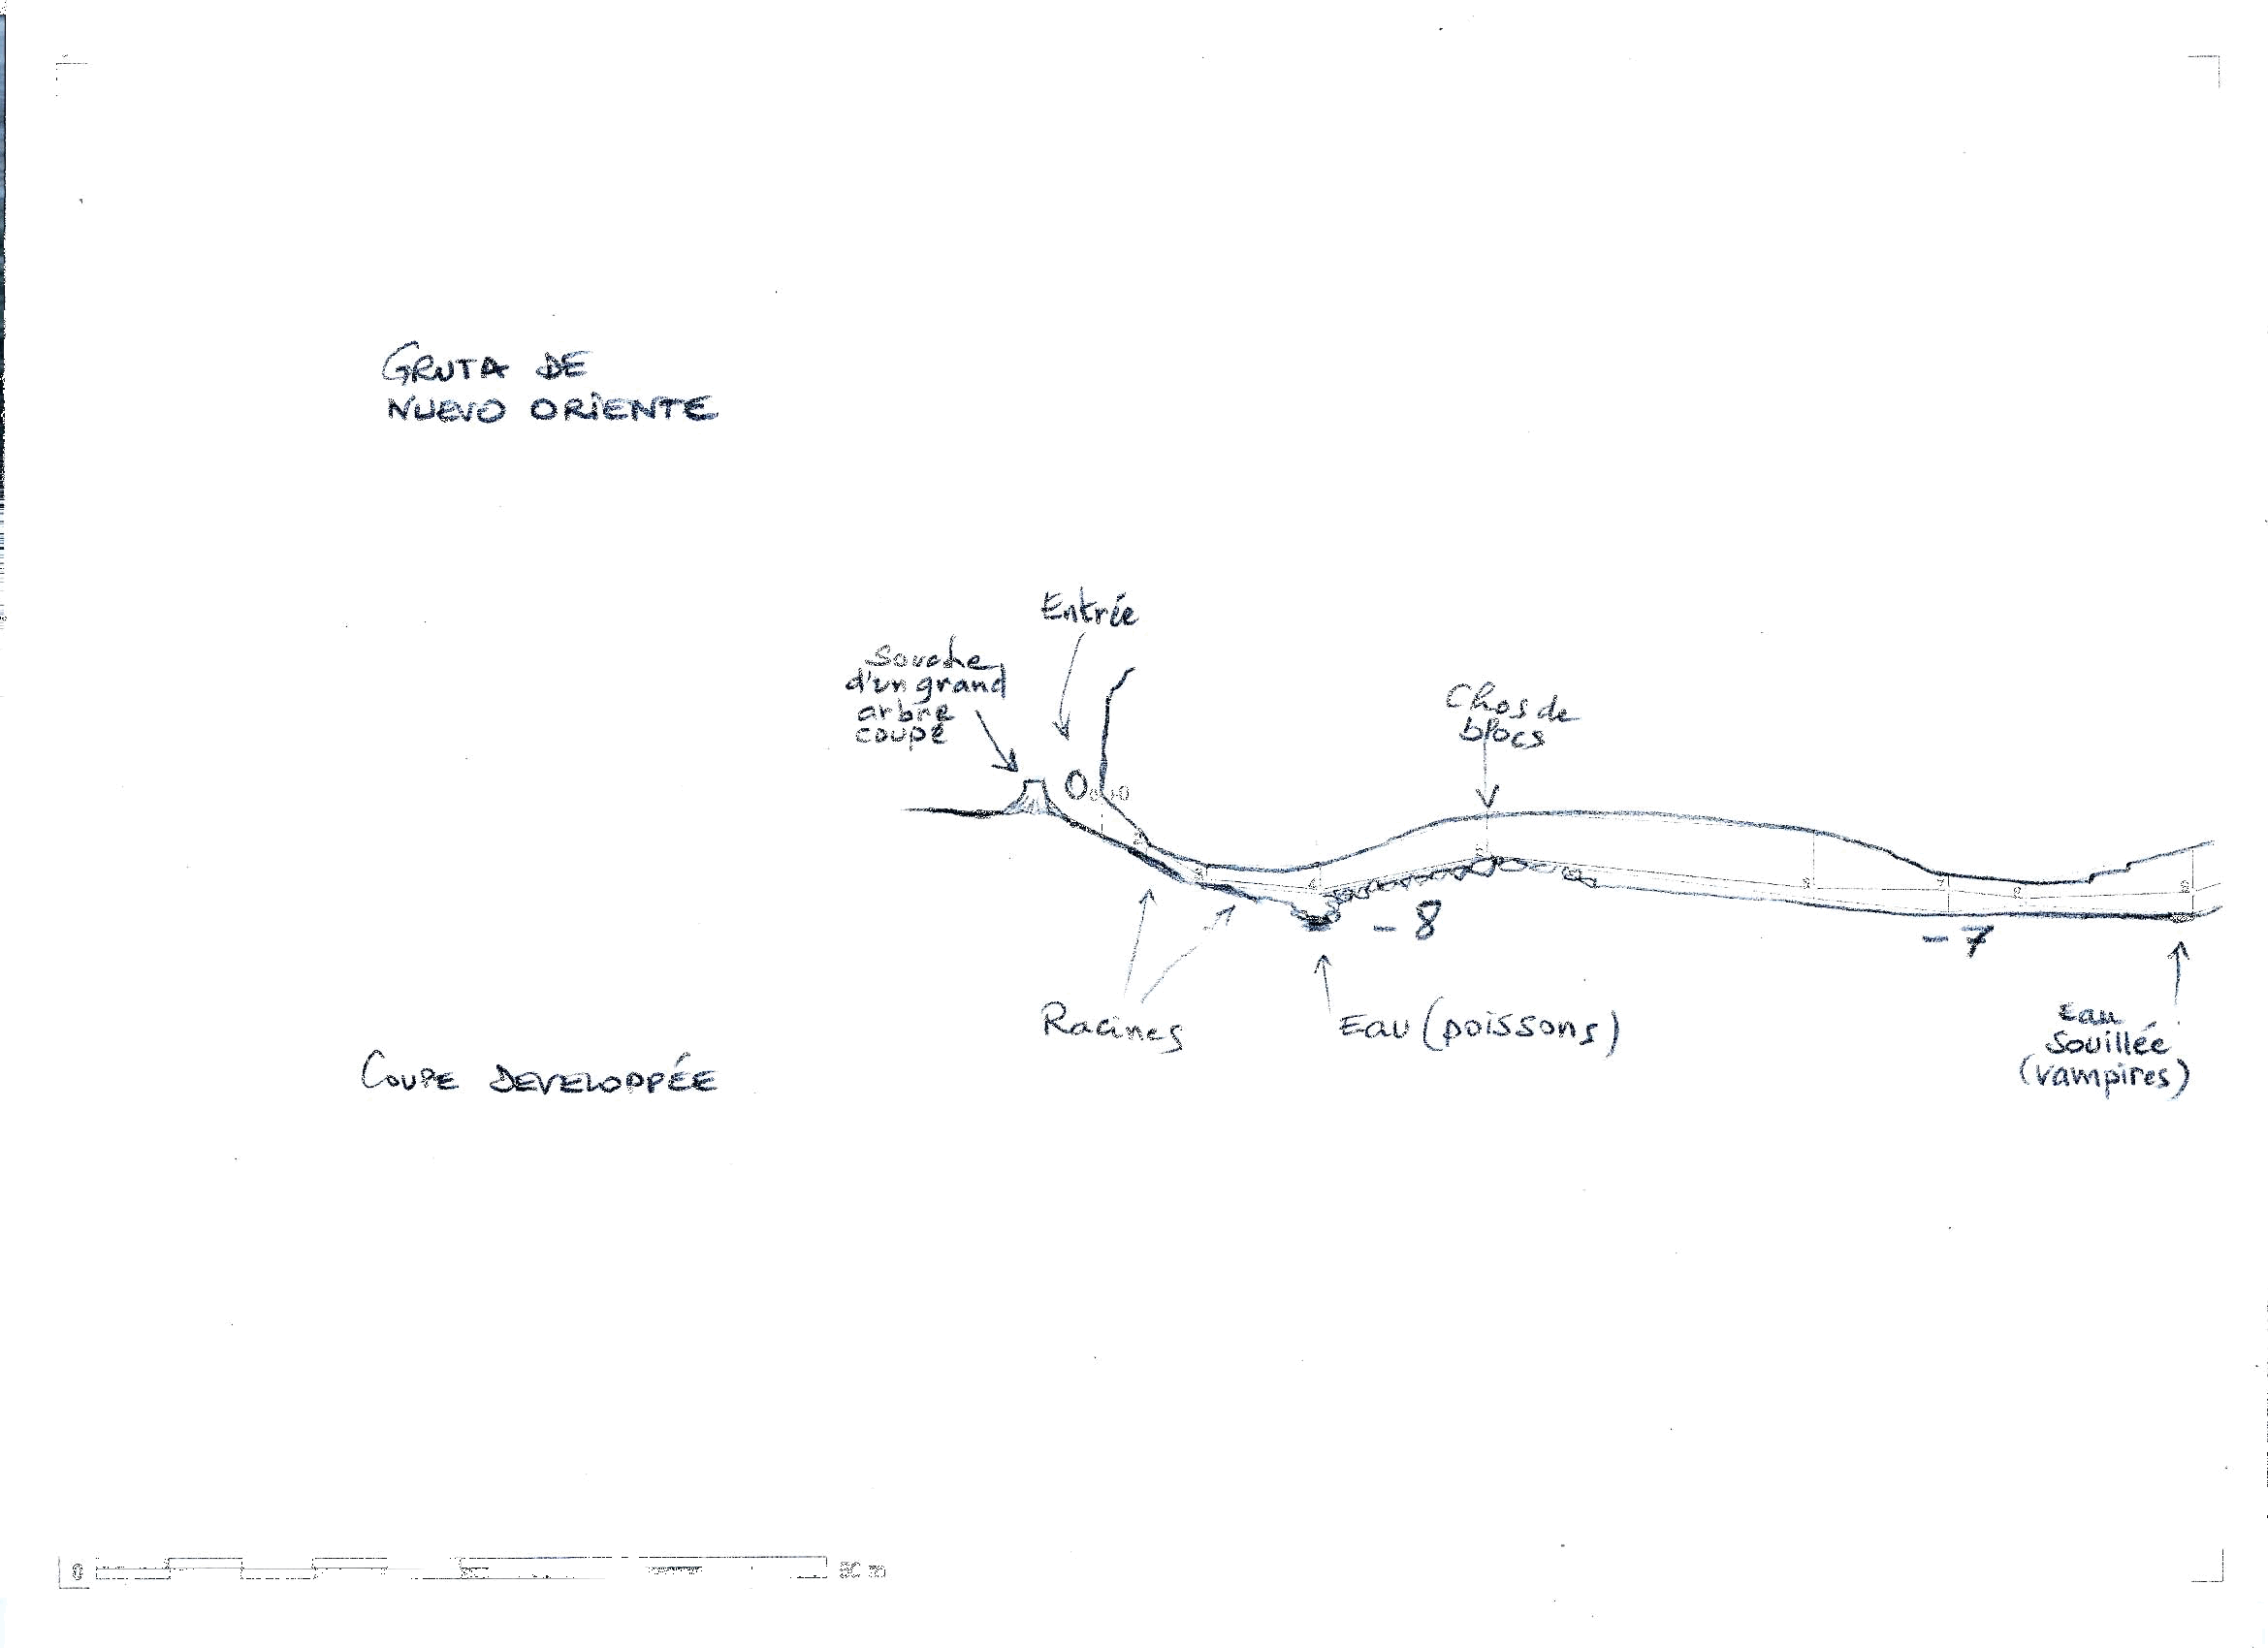 GRUTA DE
NUEVO ORIENTE
Entrée
Souche
d'un grand
arbre
coupé
Chos de
blocs
0
2
3
4
7
- 8
- 7
Racines
Eau (poissons)
Eau
Souillée
(vampires)
COUPE DEVELOPPÉE
0